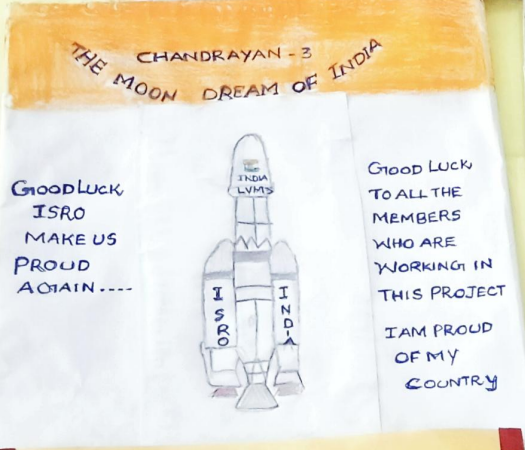 CHANDRAYAN - 3
THE MOON DREAM OF INDIA
GOOD LUCK
ISRO
MAKE US
PROUD
AGAIN ----
INDIA
LVM3
ISRO
INDIA
GOOD LUCK
TO ALL THE
MEMBERS
WHO ARE
WORKING IN
THIS PROJECT
I AM PROUD
OF MY
COUNTRY